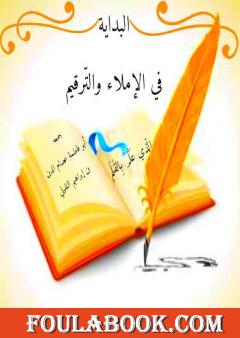 البداية
في الإملاء والتّرقيم
جمعه
أبو فاطمة عصام الدين
بن إبراهيم النقيلي
الّذي علّم بالقلم
FOULABOOK.COM